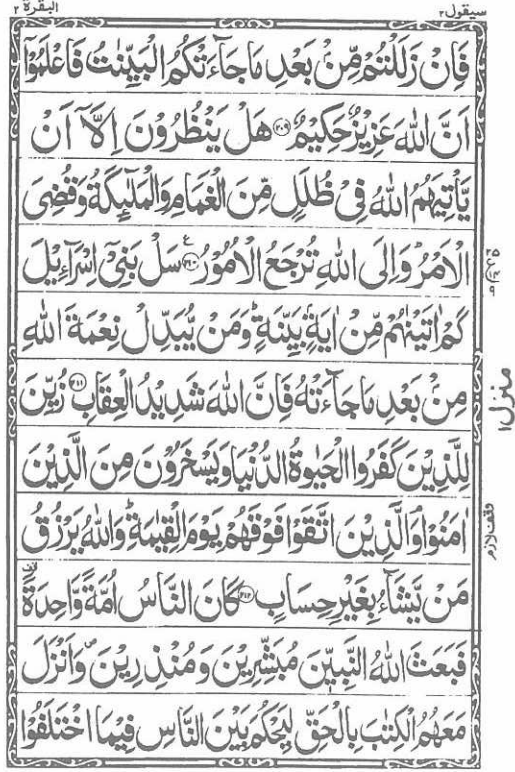 سيقول٢ البقرة ٢
فَاِنْ زَلَلْتُمْ مِّنْۢ بَعْدِ مَا جَآءَتْكُمُ الْبَيِّنٰتُ فَاعْلَمُوْٓا
اَنَّ اللّٰهَ عَزِيْزٌ حَكِيْمٌ ۝٢٠٩ هَلْ يَنْظُرُوْنَ اِلَّآ اَنْ
يَّاْتِيَهُمُ اللّٰهُ فِيْ ظُلَلٍ مِّنَ الْغَمَامِ وَالْمَلٰٓئِكَةُ وَقُضِيَ
الْاَمْرُ ؕ وَاِلَى اللّٰهِ تُرْجَعُ الْاُمُوْرُ ۝٢١٠ ع سَلْ بَنِيْٓ اِسْرَآءِيْلَ
كَمْ اٰتَيْنٰهُمْ مِّنْ اٰيَةٍۭ بَيِّنَةٍ ؕ وَمَنْ يُّبَدِّلْ نِعْمَةَ اللّٰهِ
مِنْۢ بَعْدِ مَا جَآءَتْهُ فَاِنَّ اللّٰهَ شَدِيْدُ الْعِقَابِ ۝٢١١ زُيِّنَ
لِلَّذِيْنَ كَفَرُوا الْحَيٰوةُ الدُّنْيَا وَيَسْخَرُوْنَ مِنَ الَّذِيْنَ
اٰمَنُوْا ۘ وَالَّذِيْنَ اتَّقَوْا فَوْقَهُمْ يَوْمَ الْقِيٰمَةِ ؕ وَاللّٰهُ يَرْزُقُ
مَنْ يَّشَآءُ بِغَيْرِ حِسَابٍ ۝٢١٢ كَانَ النَّاسُ اُمَّةً وَّاحِدَةً
فَبَعَثَ اللّٰهُ النَّبِيّٖنَ مُبَشِّرِيْنَ وَمُنْذِرِيْنَ ۪ وَاَنْزَلَ
مَعَهُمُ الْكِتٰبَ بِالْحَقِّ لِيَحْكُمَ بَيْنَ النَّاسِ فِيْمَا اخْتَلَفُوْا
منزل١
وقف لازم